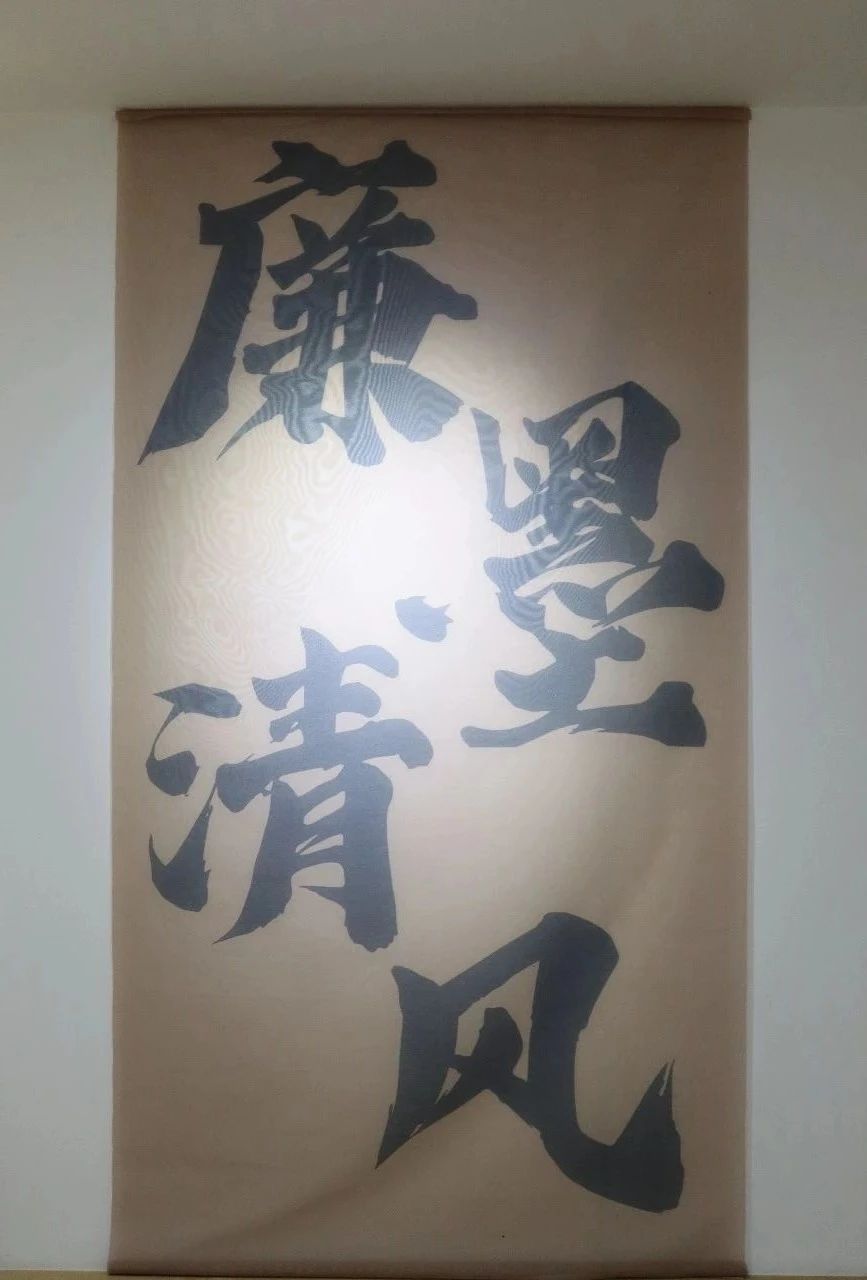 廉墨·清风